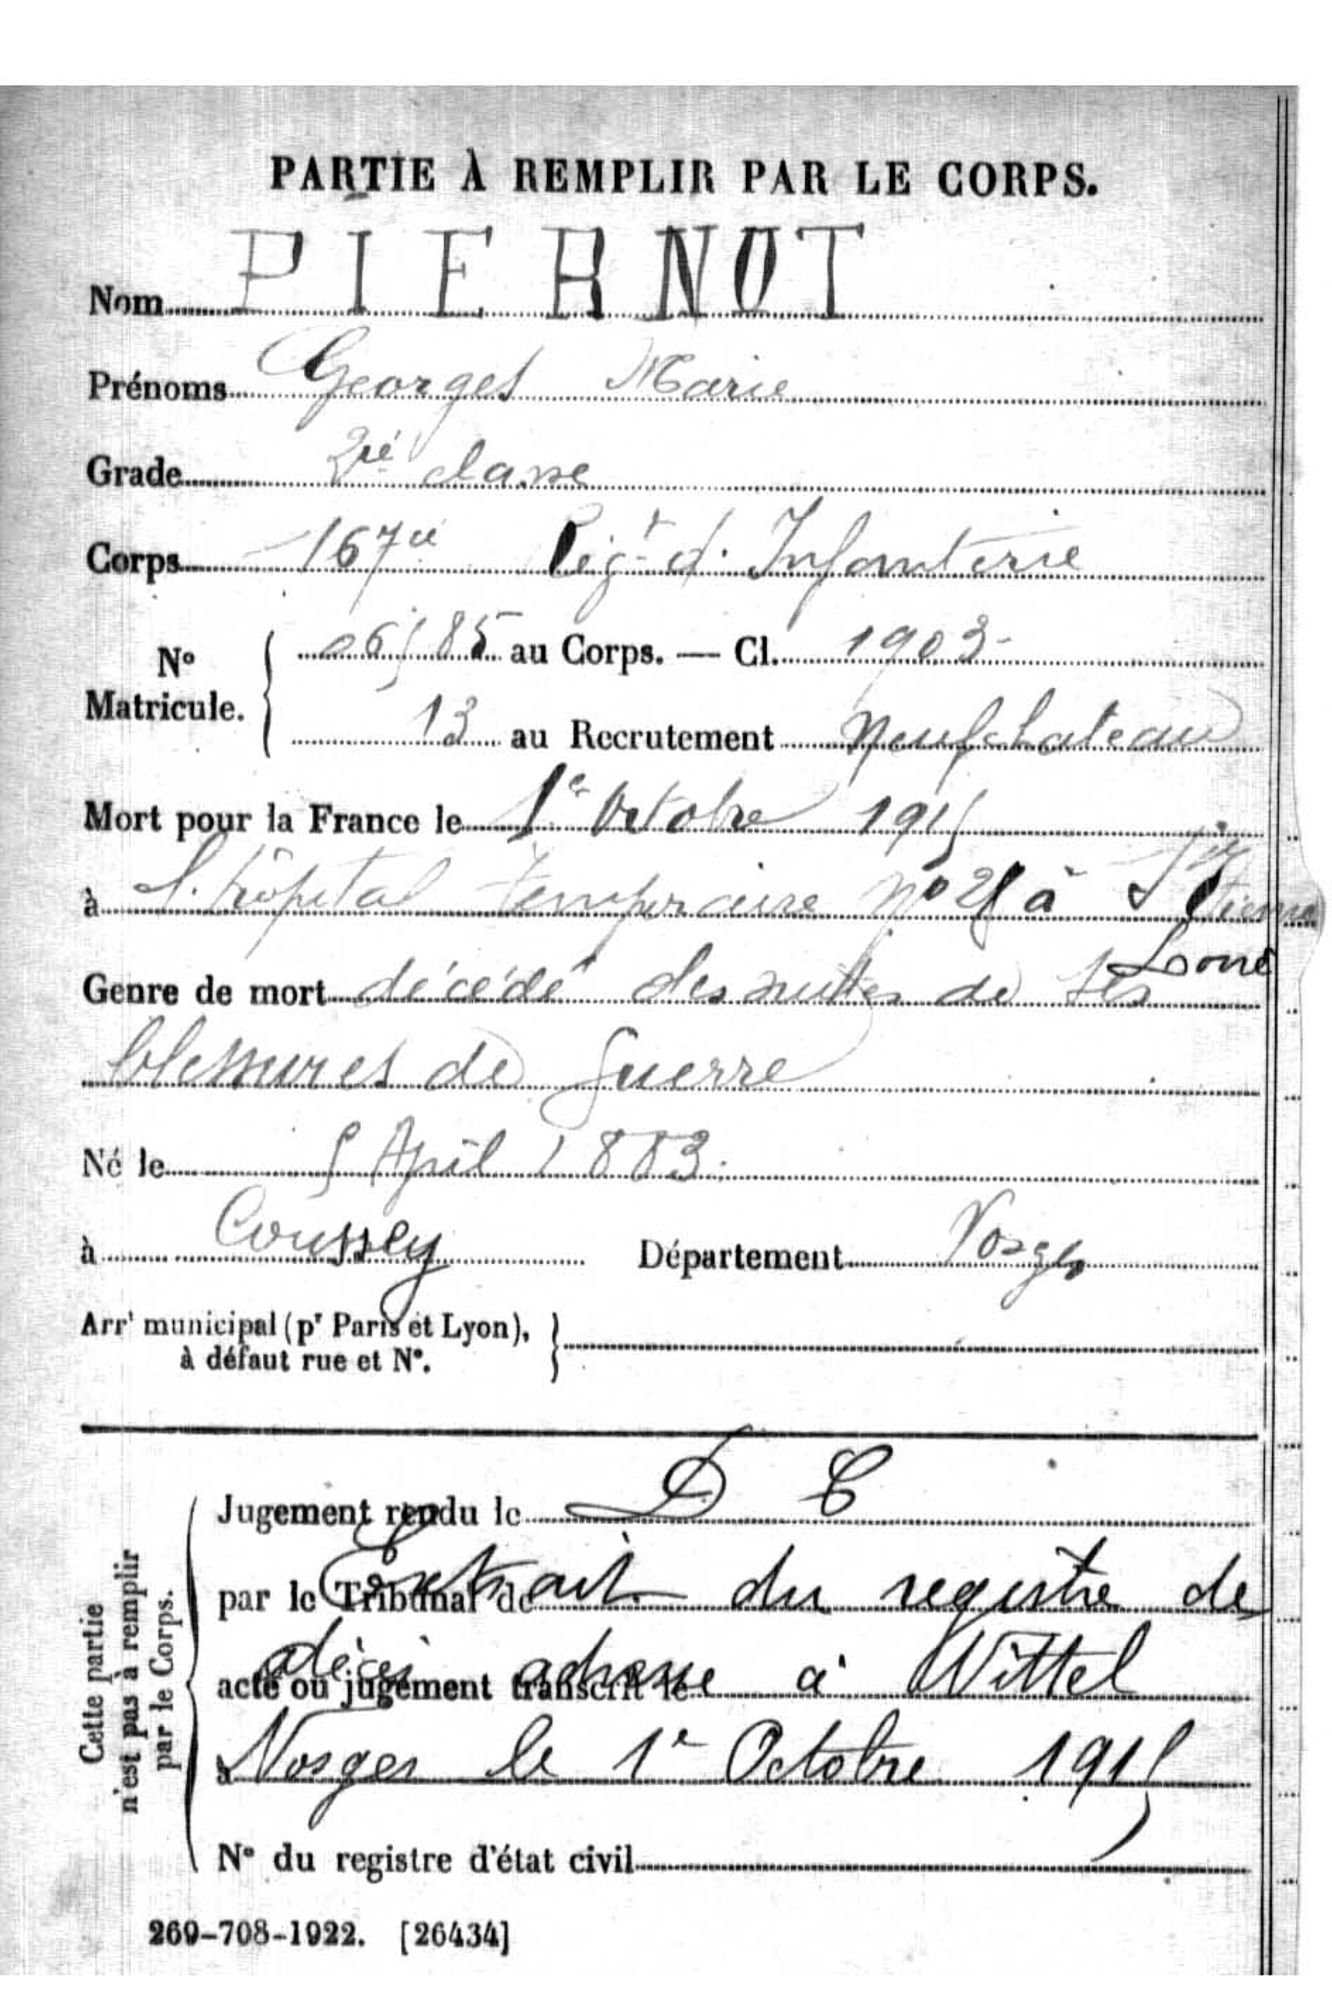 PARTIE À REMPLIR PAR LE CORPS.
Nom PIERNOT
Prénoms Georges Marie
Grade 2ie classe
Corps 167ie Régt d'Infanterie
N° Matricule. 06585 au Corps. — Cl. 1903
13 au Recrutement Neufchateau
Mort pour la France le 1er Octobre 1915
à l'hôpital temporaire No à St Etienne
Genre de mort décédé des suites de ses
blessures de guerre
Né le 5 April 1883
à Coussey Département Vosges
Arrt municipal (pr Paris et Lyon),
à défaut rue et N°.
Cette partie
n'est pas à remplir
par le Corps.
Jugement rendu le D C
par le Tribunal de Extrait du registre de
acte ou jugement transcrit le décès adresse à Wittel
à Vosges le 1r Octobre 1915
N° du registre d'état civil
269-708-1922. [26434]